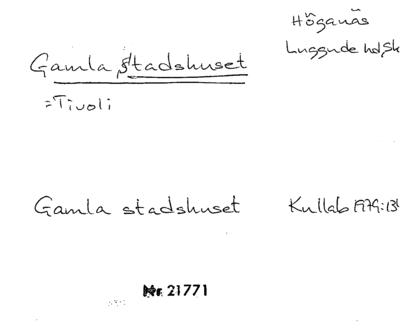 Höganäs
Luggude hd, Sk
Gamla stadshuset
=Tivoli
Gamla stadshuset Kullab 1979:134
Nr 21771